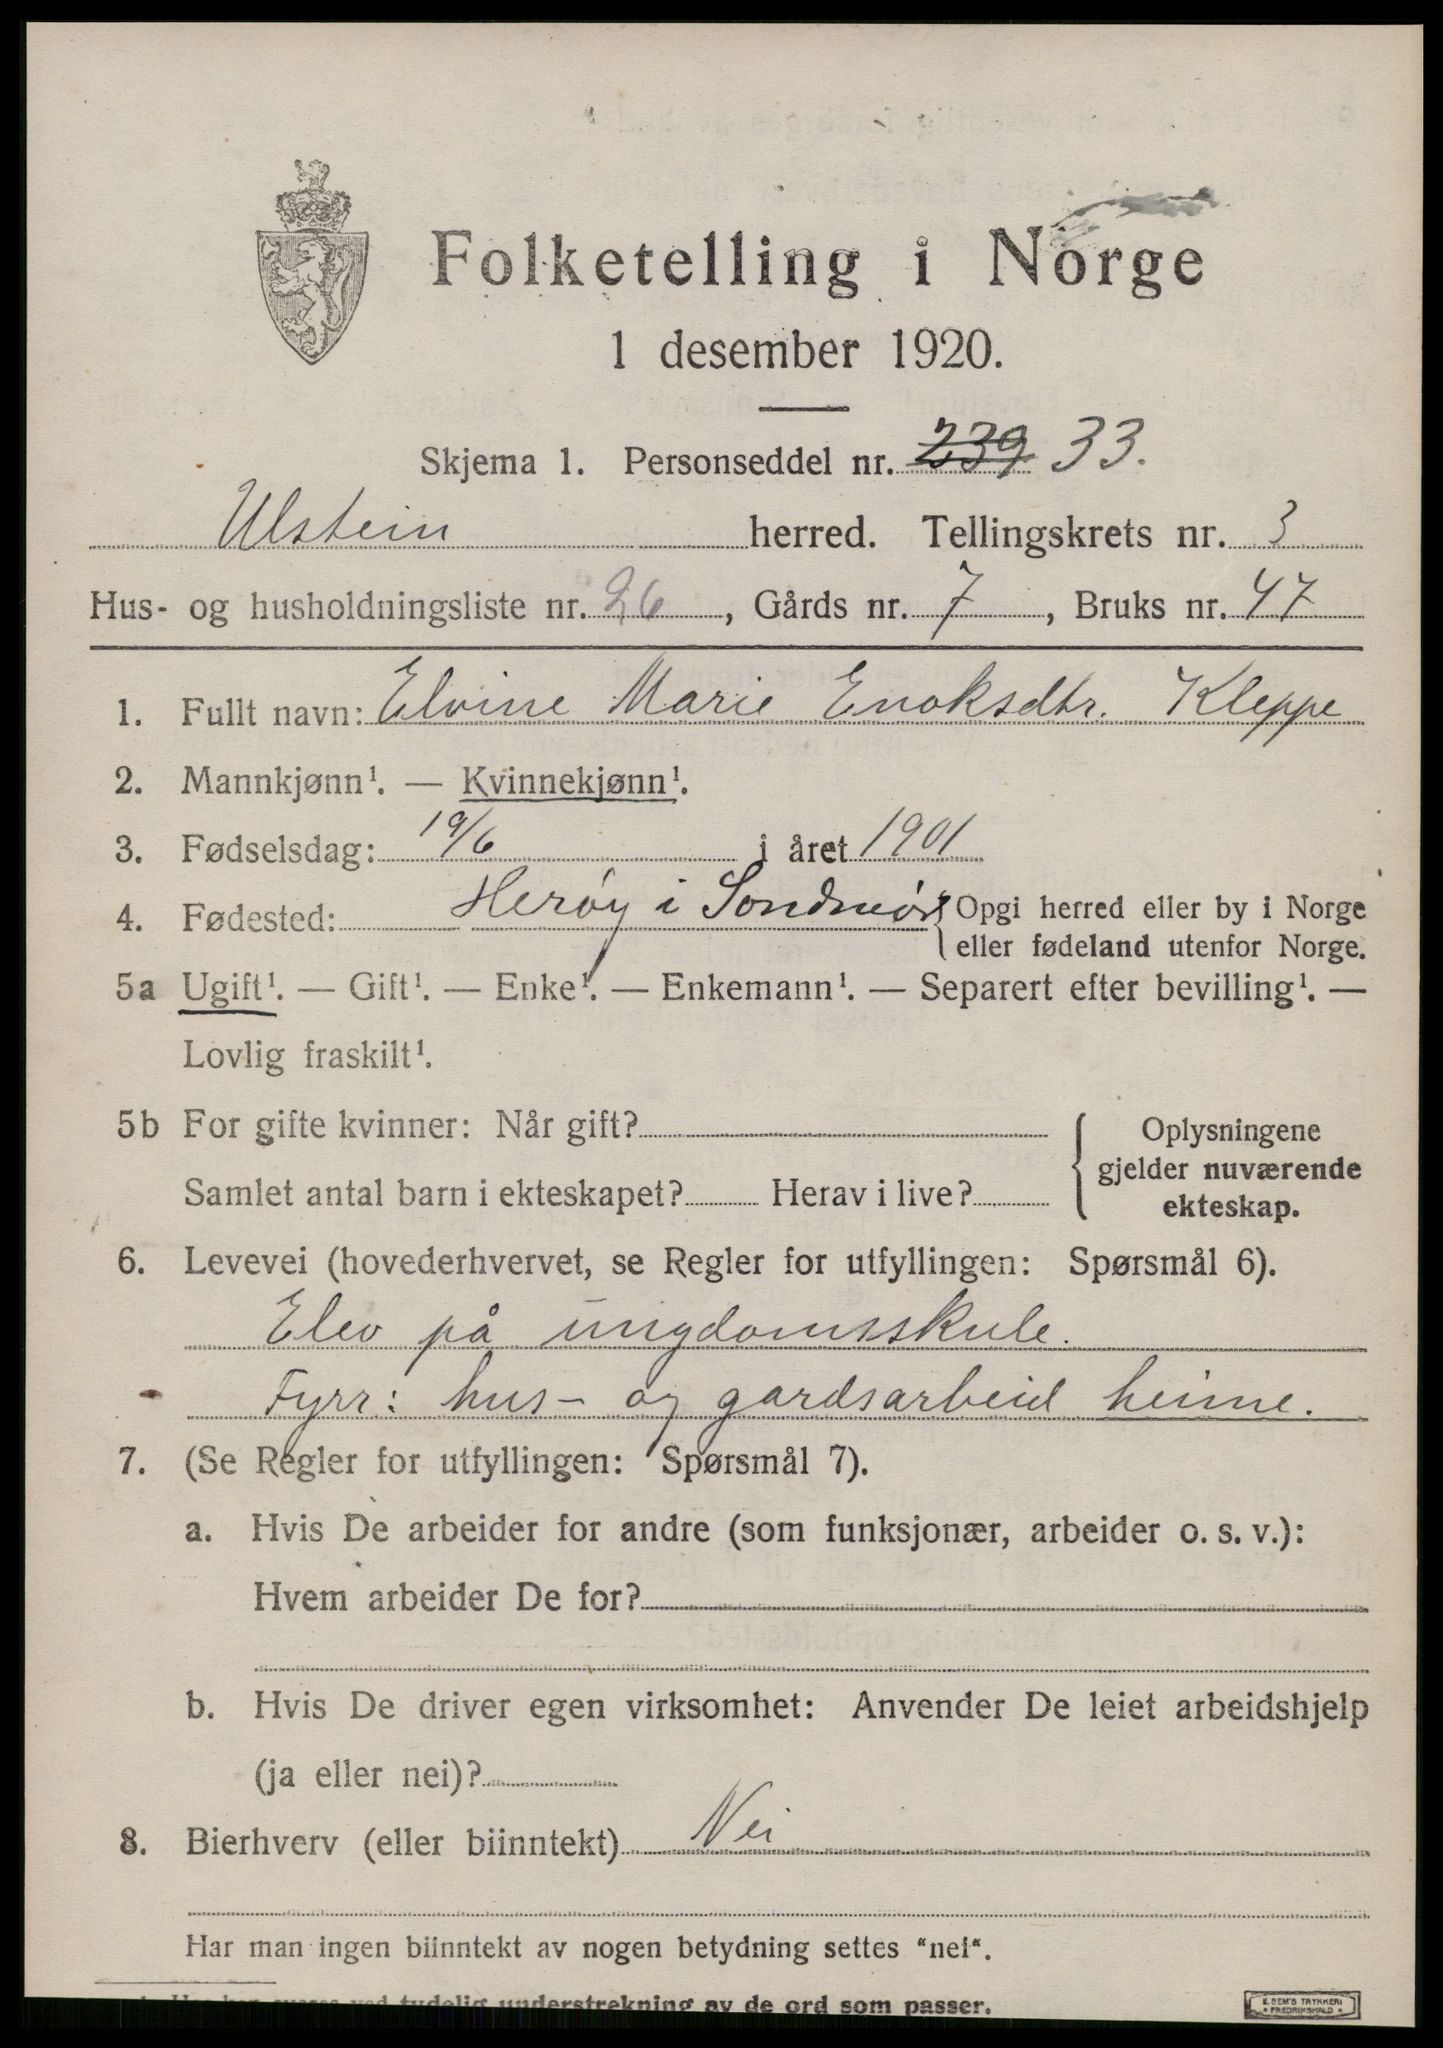 Folketelling i Norge
1 desember 1920.
Skjema 1. Personseddel nr. 239 33.
Ulstein herred. Tellingskrets nr. 3
Hus- og husholdningsliste nr. 26, Gårds nr. 7, Bruks nr. 47
1. Fullt navn: Elvine Marie Enoksdtr. Kleppe
2. Mannkjønn¹. — Kvinnekjønn¹.
3. Fødselsdag: 19/6 i året 1901
4. Fødested: Herøy i Sondmør {Opgi herred eller by i Norge
eller fødeland utenfor Norge.
5a Ugift¹. — Gift¹. — Enke¹. — Enkemann¹. — Separert efter bevilling¹. —
Lovlig fraskilt¹.
5b For gifte kvinner: Når gift?
Samlet antal barn i ekteskapet? Herav i live?
{ Oplysningene
gjelder nuværende
ekteskap.
6. Levevei (hovederhvervet, se Regler for utfyllingen: Spørsmål 6).
Elev på ungdomsskule.
Fyrr: hus- og gardsarbeid heime.
7. (Se Regler for utfyllingen: Spørsmål 7).
a. Hvis De arbeider for andre (som funksjonær, arbeider o. s. v.):
Hvem arbeider De for?
b. Hvis De driver egen virksomhet: Anvender De leiet arbeidshjelp
(ja eller nei)?
8. Bierhverv (eller biinntekt) Nei
Har man ingen biinntekt av nogen betydning settes "nei".
ved tydelig understrekning av de ord som passer.
E. SEM'S TRYKKERI
FREDRIKSHALD